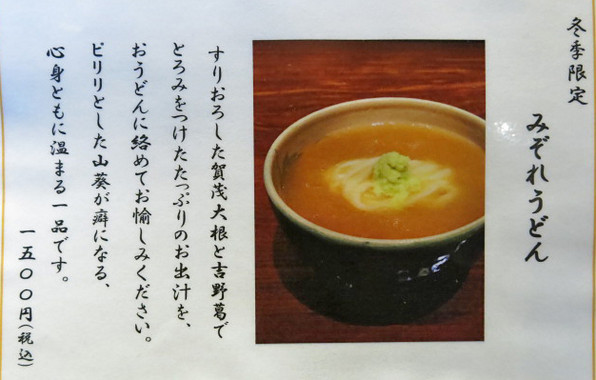 冬季限定
みぞれうどん
すりおろした賀茂大根と吉野葛で
とろみをつけたたっぷりのお出汁を、
おうどんに絡めてお愉しみください。
ピリリとした山葵が癖になる、
心身ともに温まる一品です。
一五〇〇円(税込)